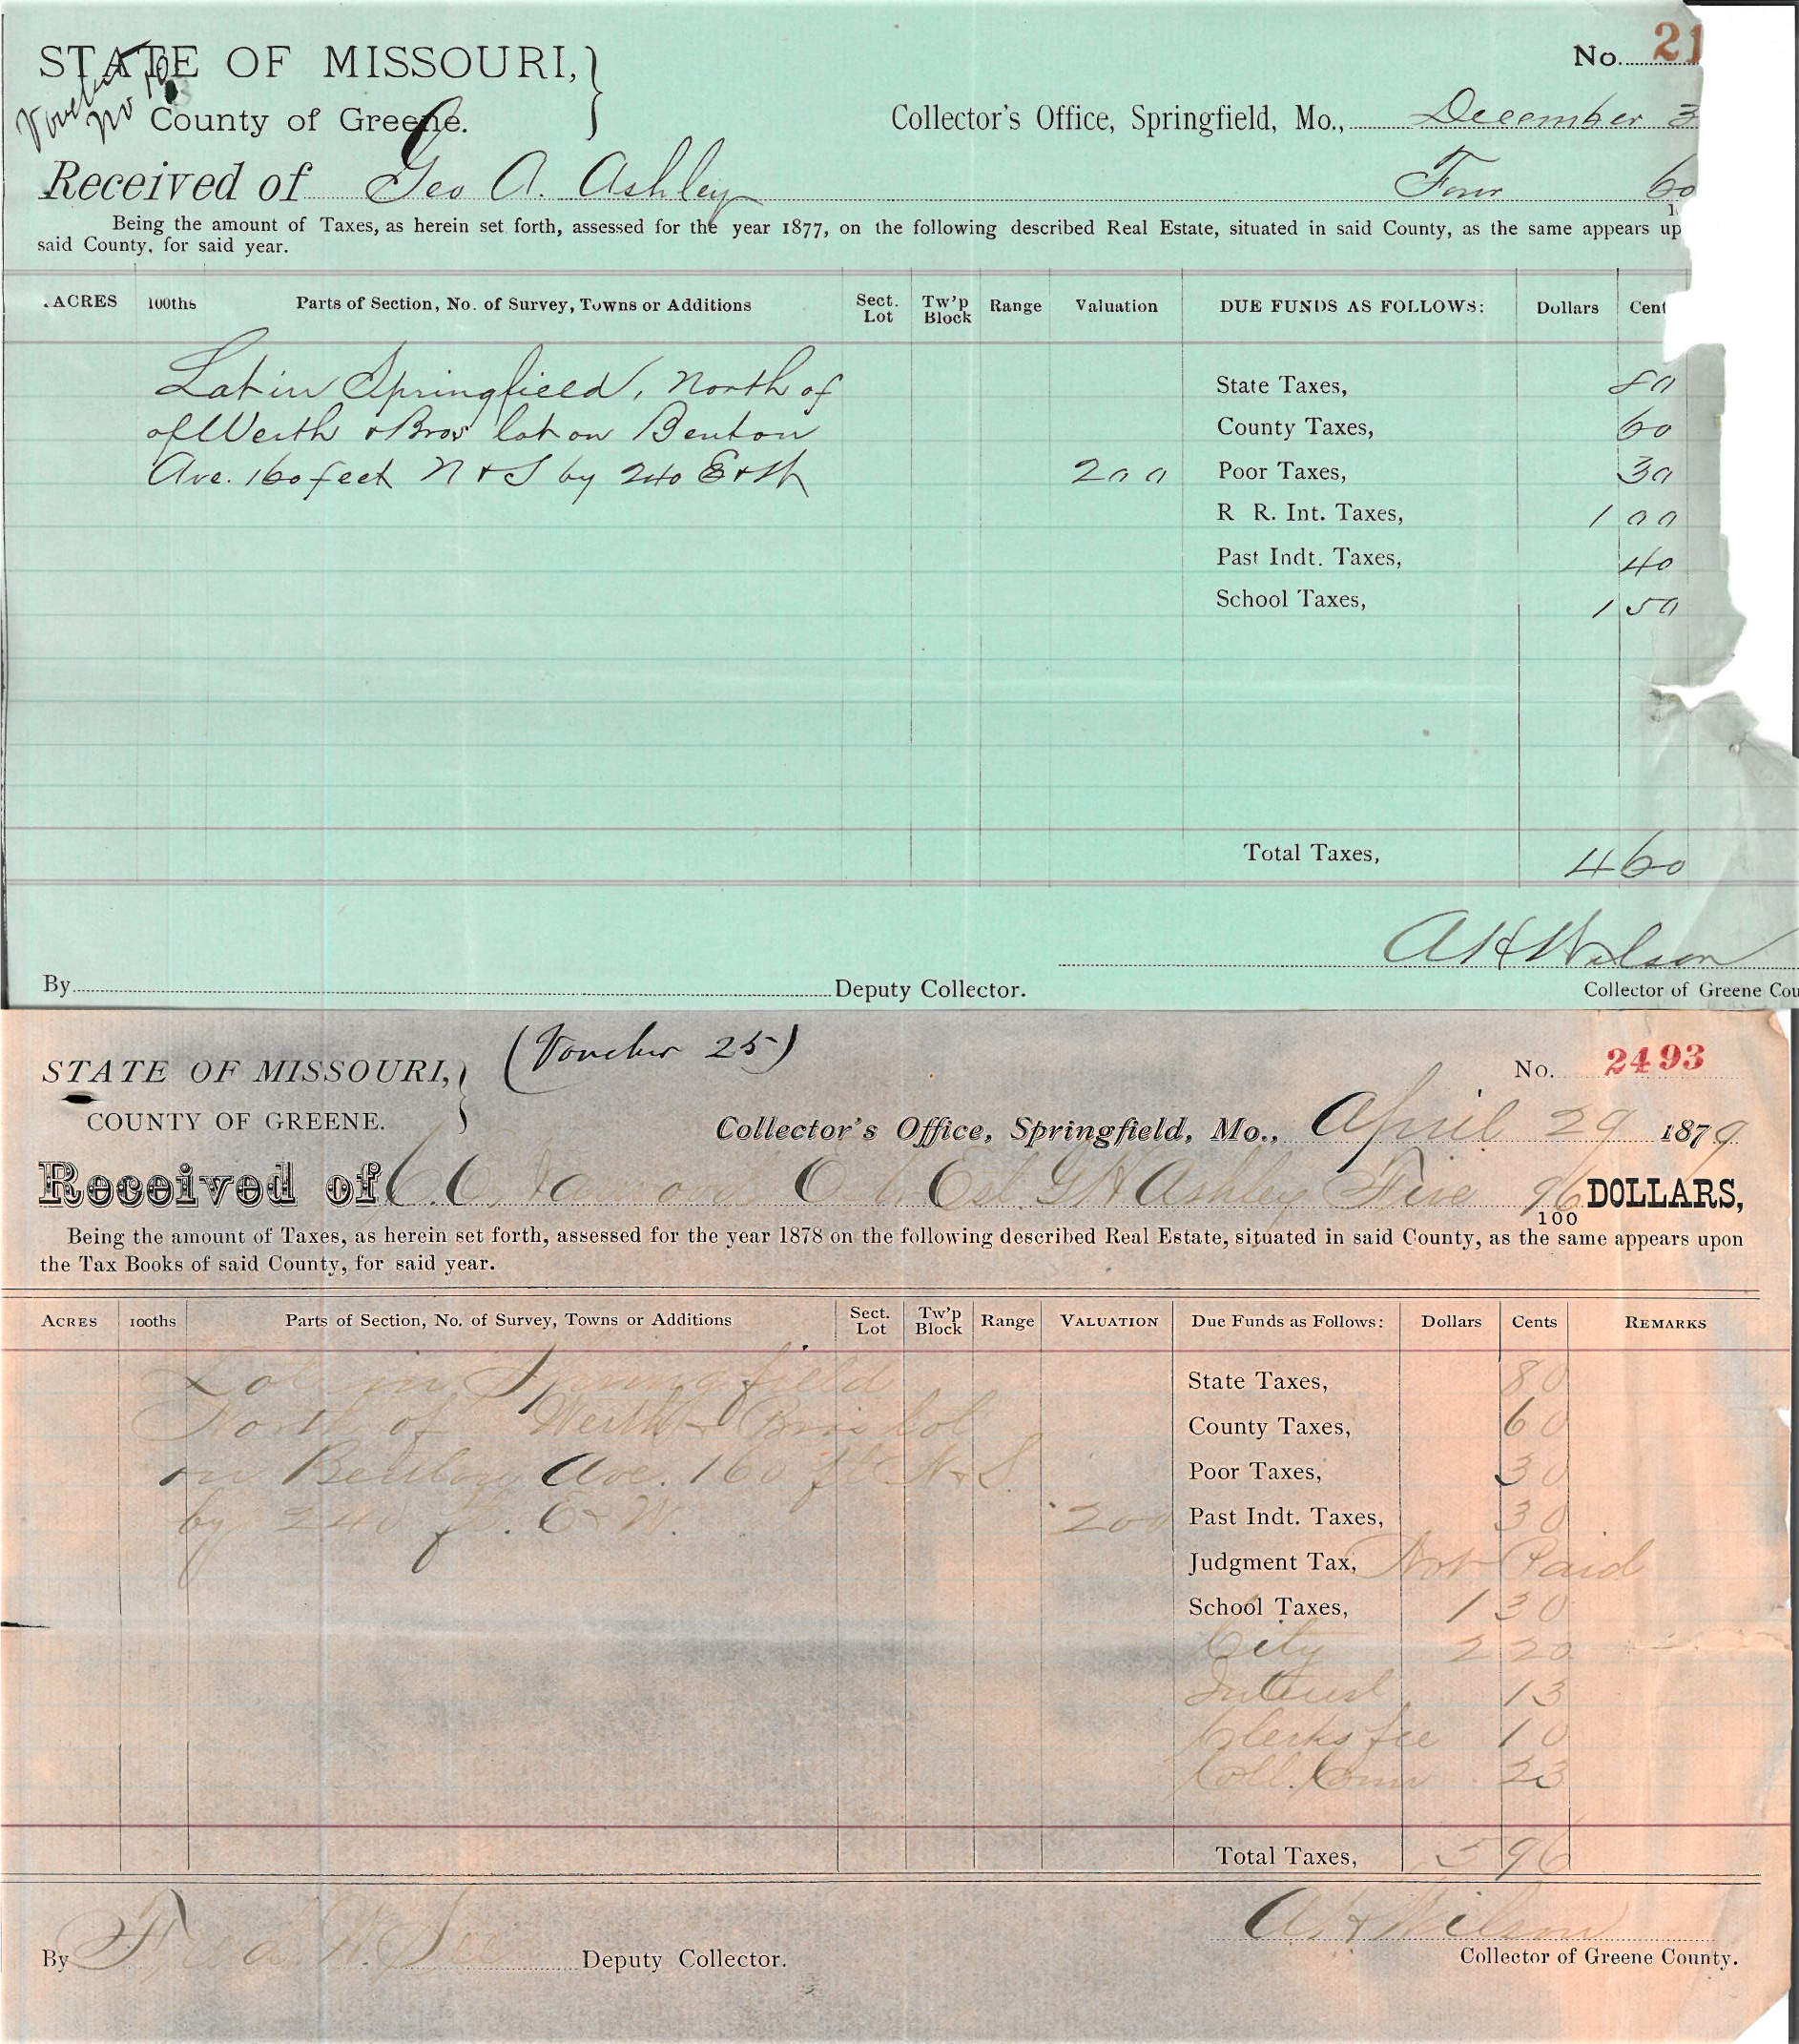 STATE OF MISSOURI,
No. 21
Voucher
No 10
County of Greene.
Collector's Office, Springfield, Mo., December 3
Received of Geo A. Ashley Four 60
Being the amount of Taxes, as herein set forth, assessed for the year 1877, on the following described Real Estate, situated in said County, as the same appears up
said County, for said year.
ACRES 100ths Parts of Section, No. of Survey, Towns or Additions Sect. Lot Tw'p Block Range Valuation DUE FUNDS AS FOLLOWS: Dollars Cent
Lot in Springfield, North of State Taxes, 80
of Werth & Bros lot on Benton County Taxes, 60
Ave. 160 feet N & S by 240 E & W 200 Poor Taxes, 30
R R. Int. Taxes, 1 00
Past Indt. Taxes, 40
School Taxes, 1 50
Total Taxes, 4 60
A H Wilson
By Deputy Collector. Collector of Greene Cou
(Voucher 25)
STATE OF MISSOURI, No. 2493
COUNTY OF GREENE.
Collector's Office, Springfield, Mo., April 29 1879
Received of Est. G A Ashley Five 96/100 DOLLARS,
Being the amount of Taxes, as herein set forth, assessed for the year 1878 on the following described Real Estate, situated in said County, as the same appears upon
the Tax Books of said County, for said year.
ACRES 100ths Parts of Section, No. of Survey, Towns or Additions Sect. Lot Tw'p Block Range VALUATION Due Funds as Follows: Dollars Cents REMARKS
Lot in Springfield State Taxes, 80
North of Werth & Bros lot County Taxes, 60
on Benton Ave. 160 ft N & S. Poor Taxes, 30
by 240 ft. E & W. 200 Past Indt. Taxes, 30
Judgment Tax, Not Paid
School Taxes, 1 30
City 2 20
Interest 13
Clerks fee 10
Coll. Com 23
Total Taxes, 5 96
A H Wilson
By Deputy Collector. Collector of Greene County.